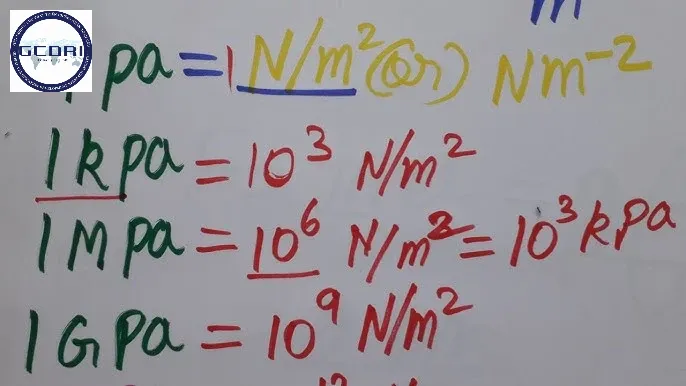 m
GCDRI
pa = 1 N/m² (or) Nm⁻²
1 kpa = 10³ N/m²
1 Mpa = 10⁶ N/m² = 10³ kpa
1 GPa = 10⁹ N/m²